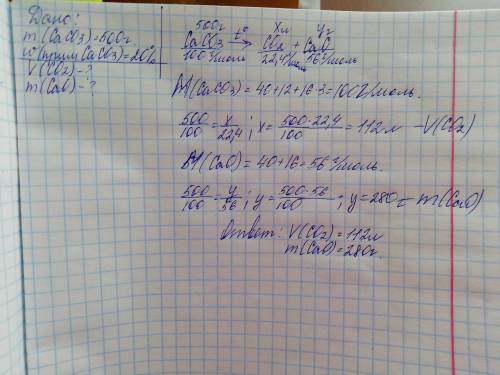 Дано:
m(CaCO3)=500г
w(прим CaCO3)=20%
V(CO2)-?
m(CaO)-?
500г xл yг
CaCO3 →t° CO2 + CaO
100г/моль 22,4л/моль 56г/моль
M(CaCO3) = 40+12+16·3=100г/моль.
500/100 = x/22,4; x= 500·22,4/100 = 112л -V(CO2)
M(CaO) = 40+16=56г/моль.
500/100 = y/56; y= 500·56/100; y=280г= m(CaO)
Ответ: V(CO2)=112л
m(CaO)=280г.